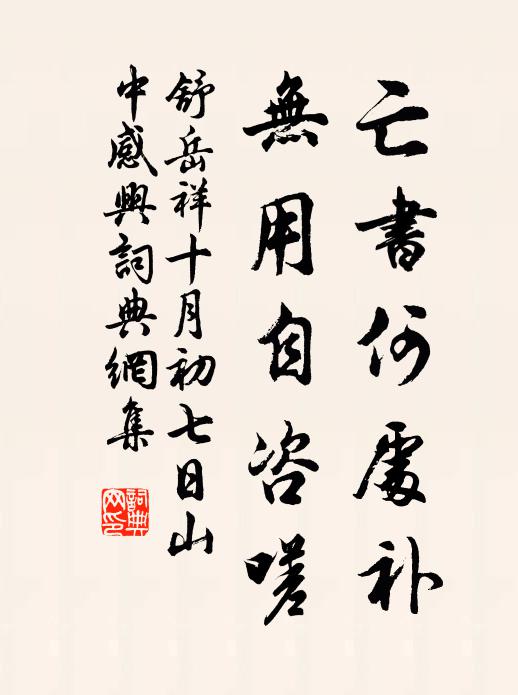 亡書何處补
無用自咨嗟
舒岳祥十月初七日山
中感興詞典網集
詞典
网印